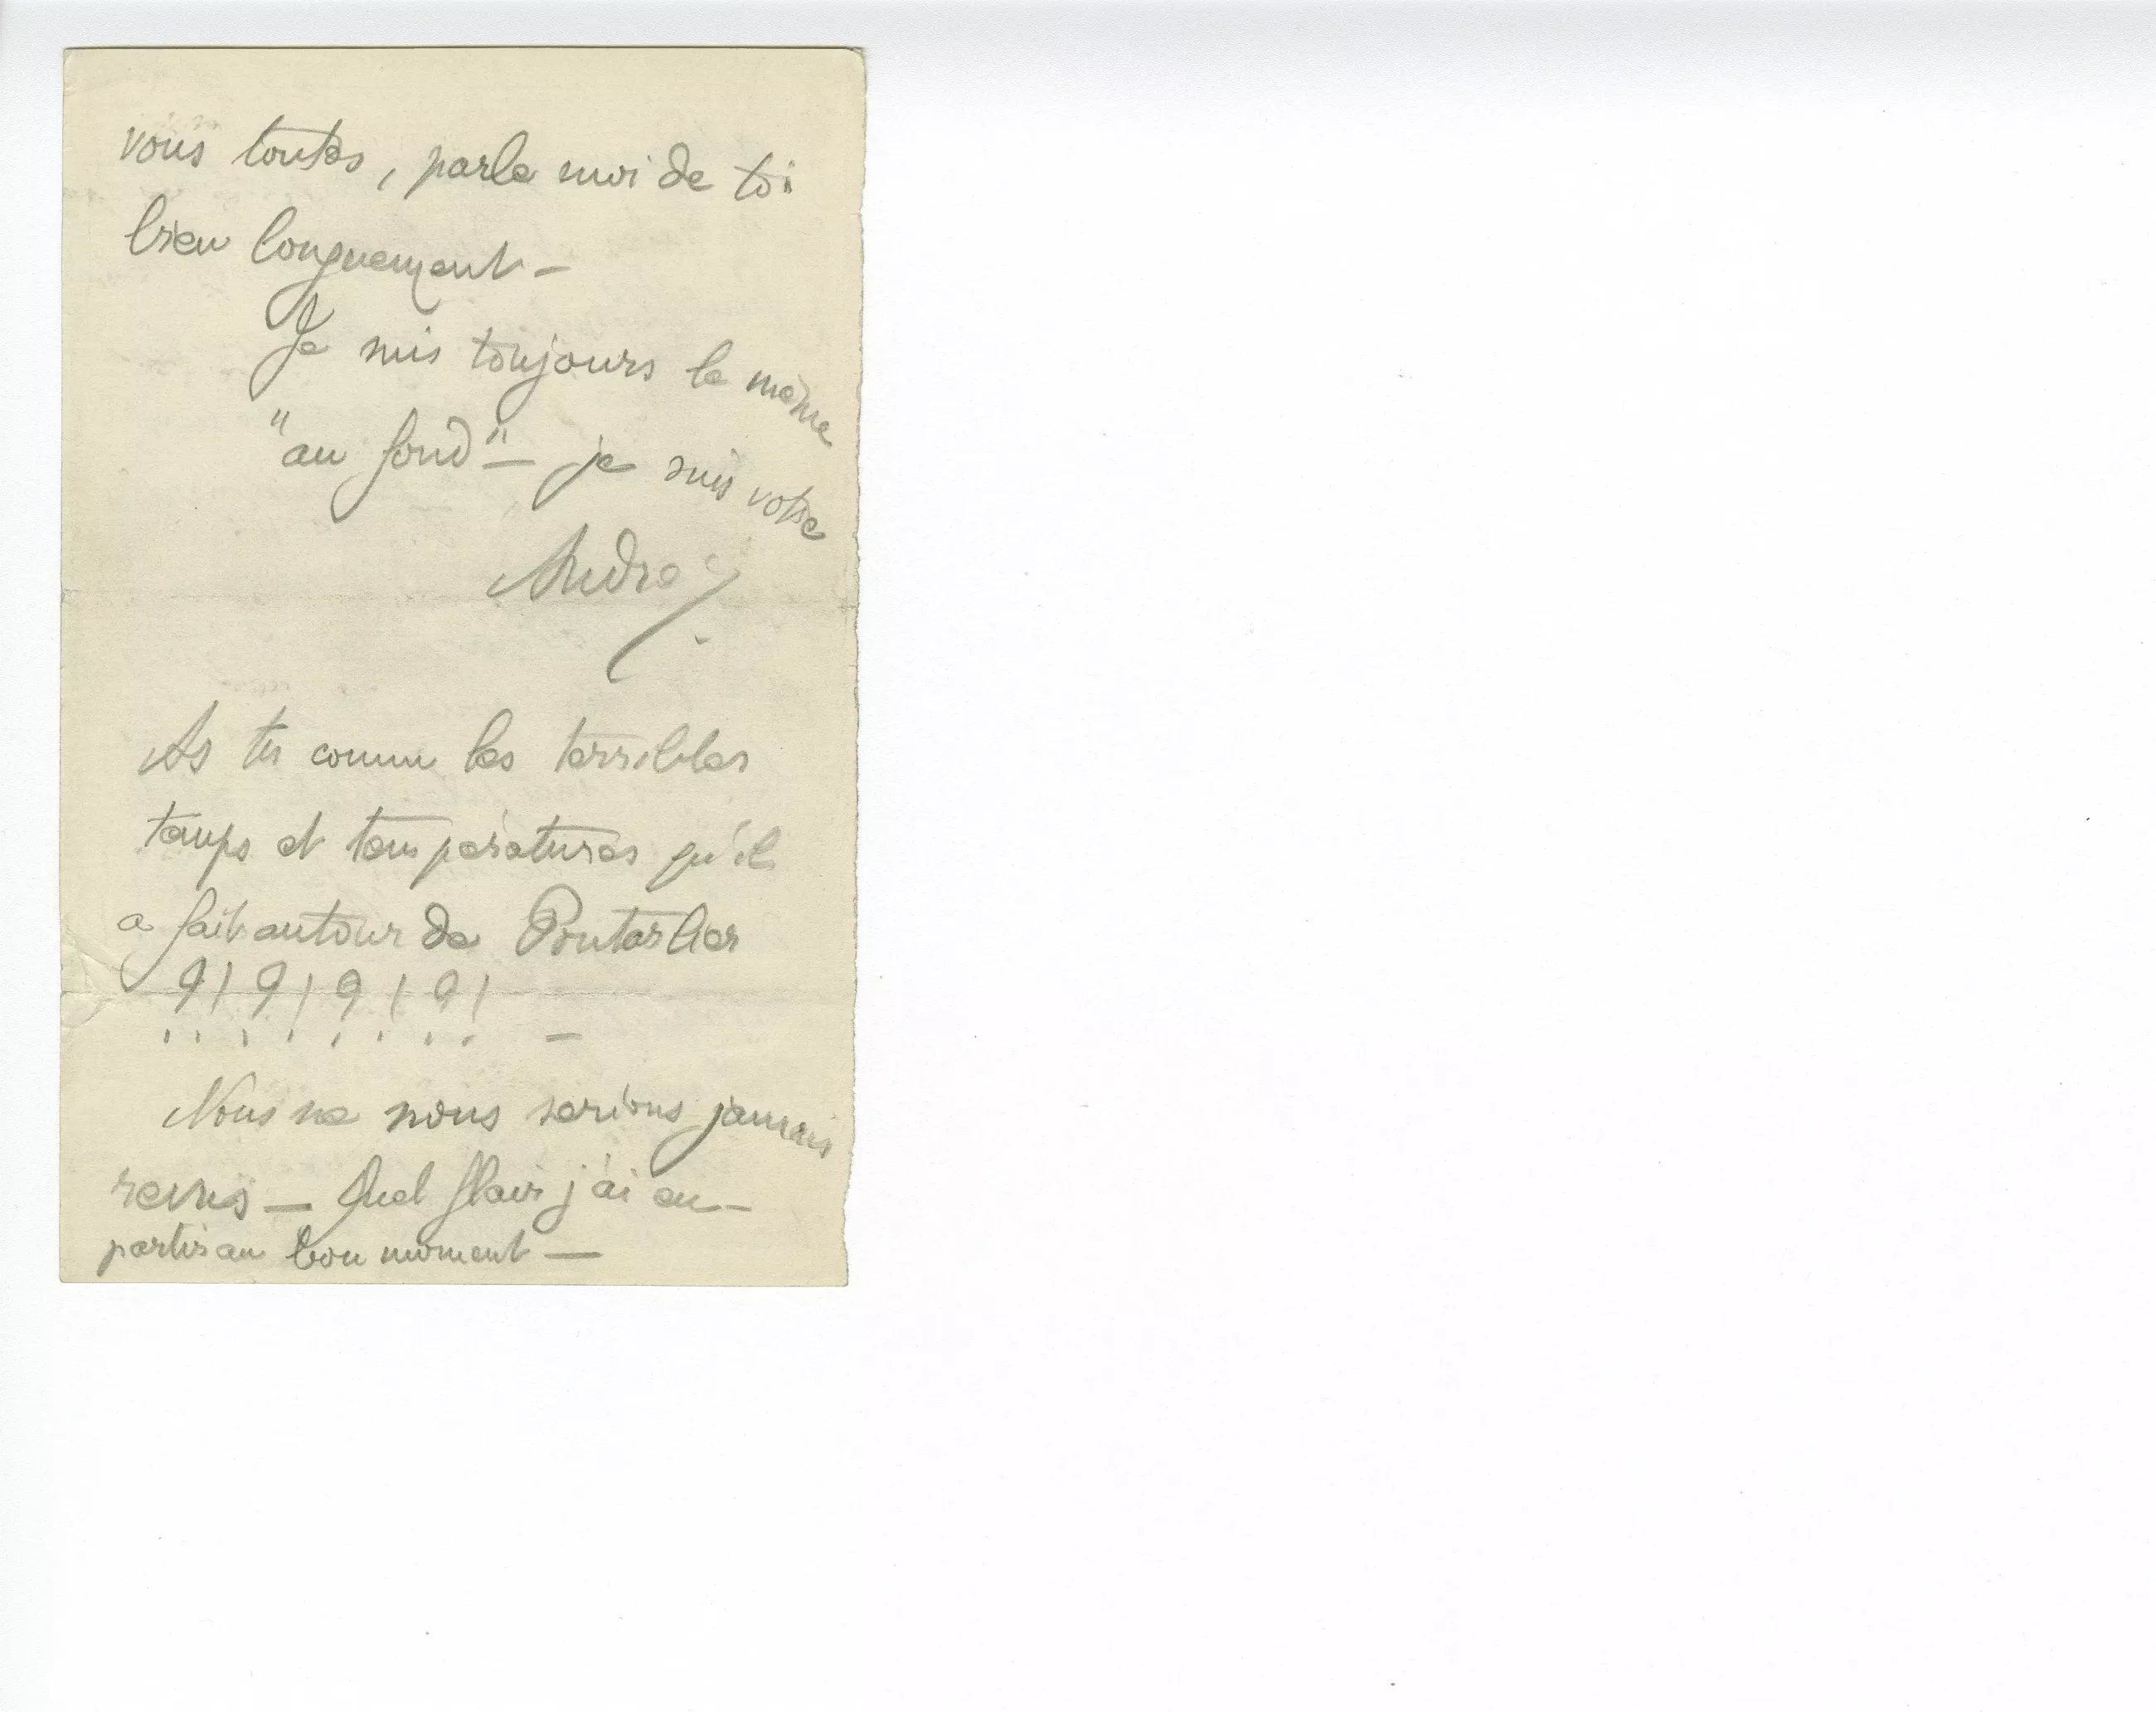 vous toutes, parle moi de toi
bien longuement –
Je suis toujours le même
"au fond" – je suis votre
André
As tu connu les terribles
temps et températures qu'il
a fait autour de Pontarlier
?!?!?!?! –
Nous ne nous serions jamais
revus – Quel flair j'ai eu –
partir au bon moment –